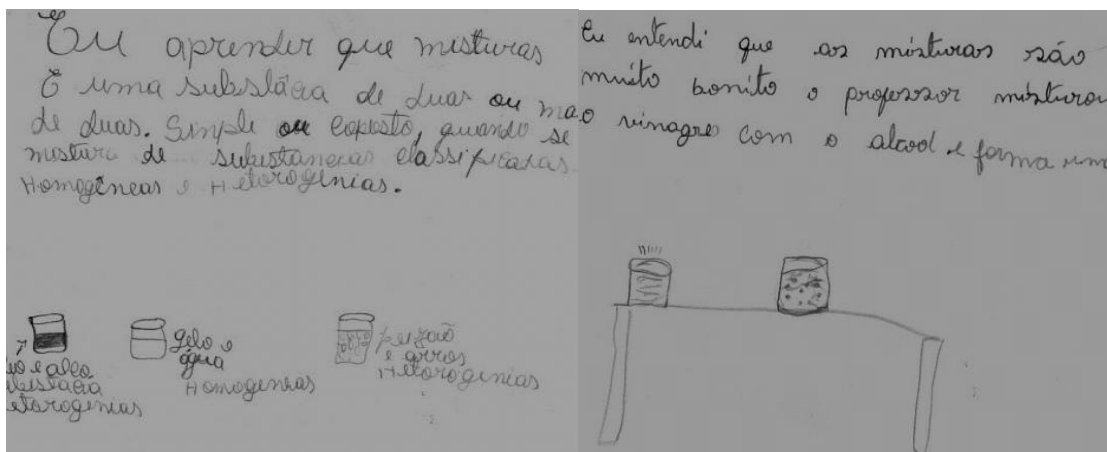 Eu aprender que misturas
É uma substâcia de duas ou ma
de duas. Simple ou coposto, quando se
mistura de substancias classificadas
Homogêneas e Hetorogenias.
Gelo e
água
Homogeneas
feijão
e arros
Hetorogenias
e alco
etorogenias
Eu entendi que as misturas são
muito bonito o professor misturou
o vinagre com o alcool e forma um